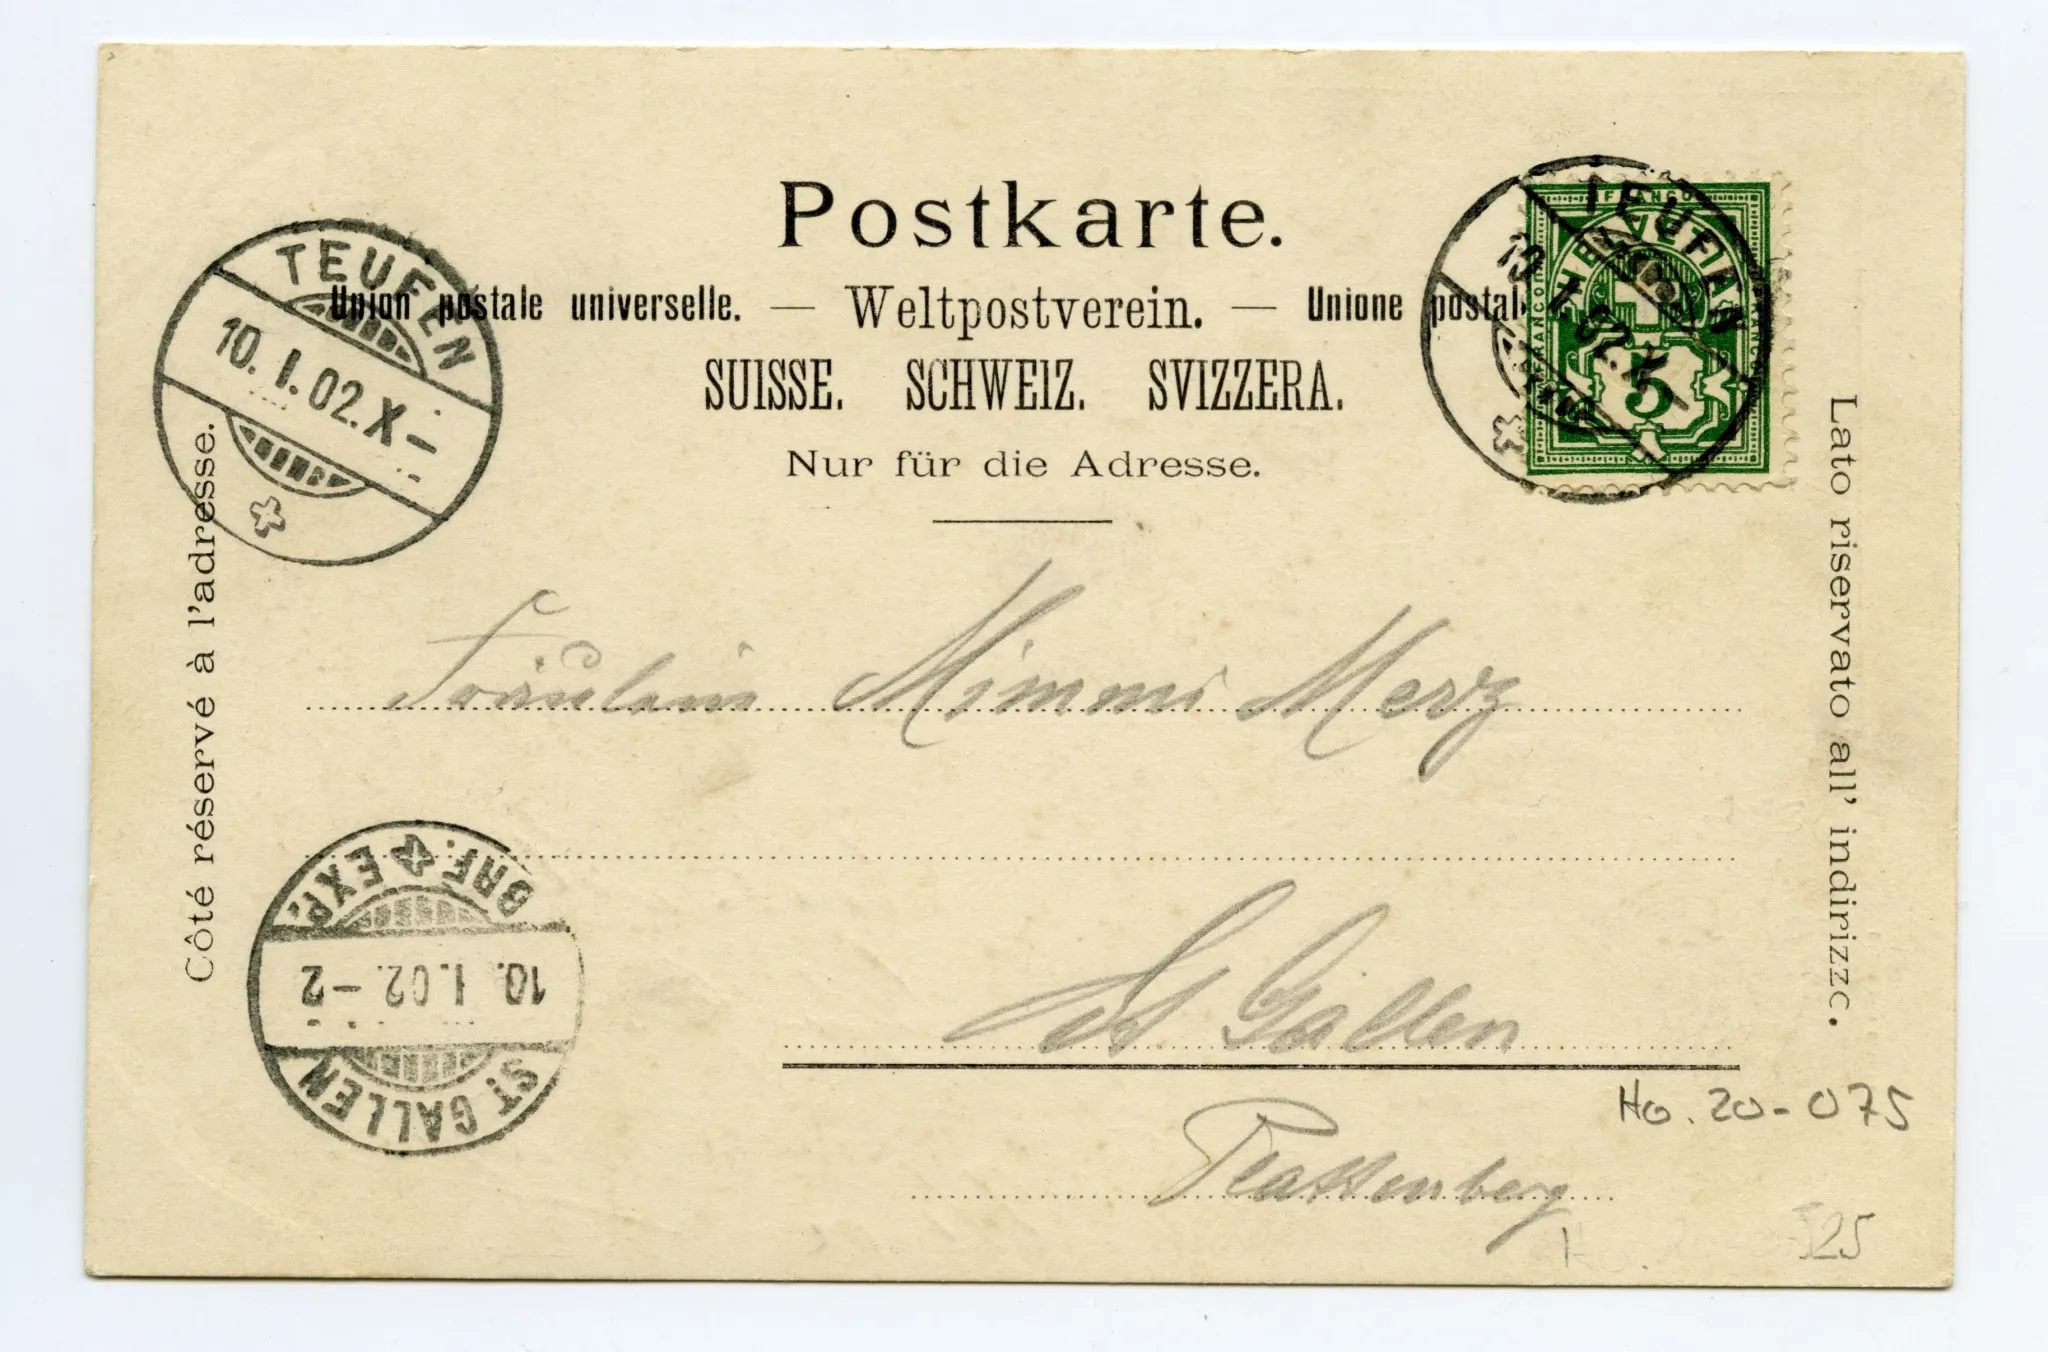 Postkarte.
Union postale universelle. — Weltpostverein. — Unione postal
SUISSE. SCHWEIZ. SVIZZERA.
Nur für die Adresse.
TEUFEN
10. I. 02. X –
TEUFEN
10. I. 02. X –
FRANCO
HELVETIA
5
Côté réservé à l'adresse.
Lato riservato all' indirizzo.
Fräulein Mimmi Merz
BRF. & EXP.
10. I. 02. – 2
ST. GALLEN
St Gallen
Ho. 20-075
Plattenberg
525